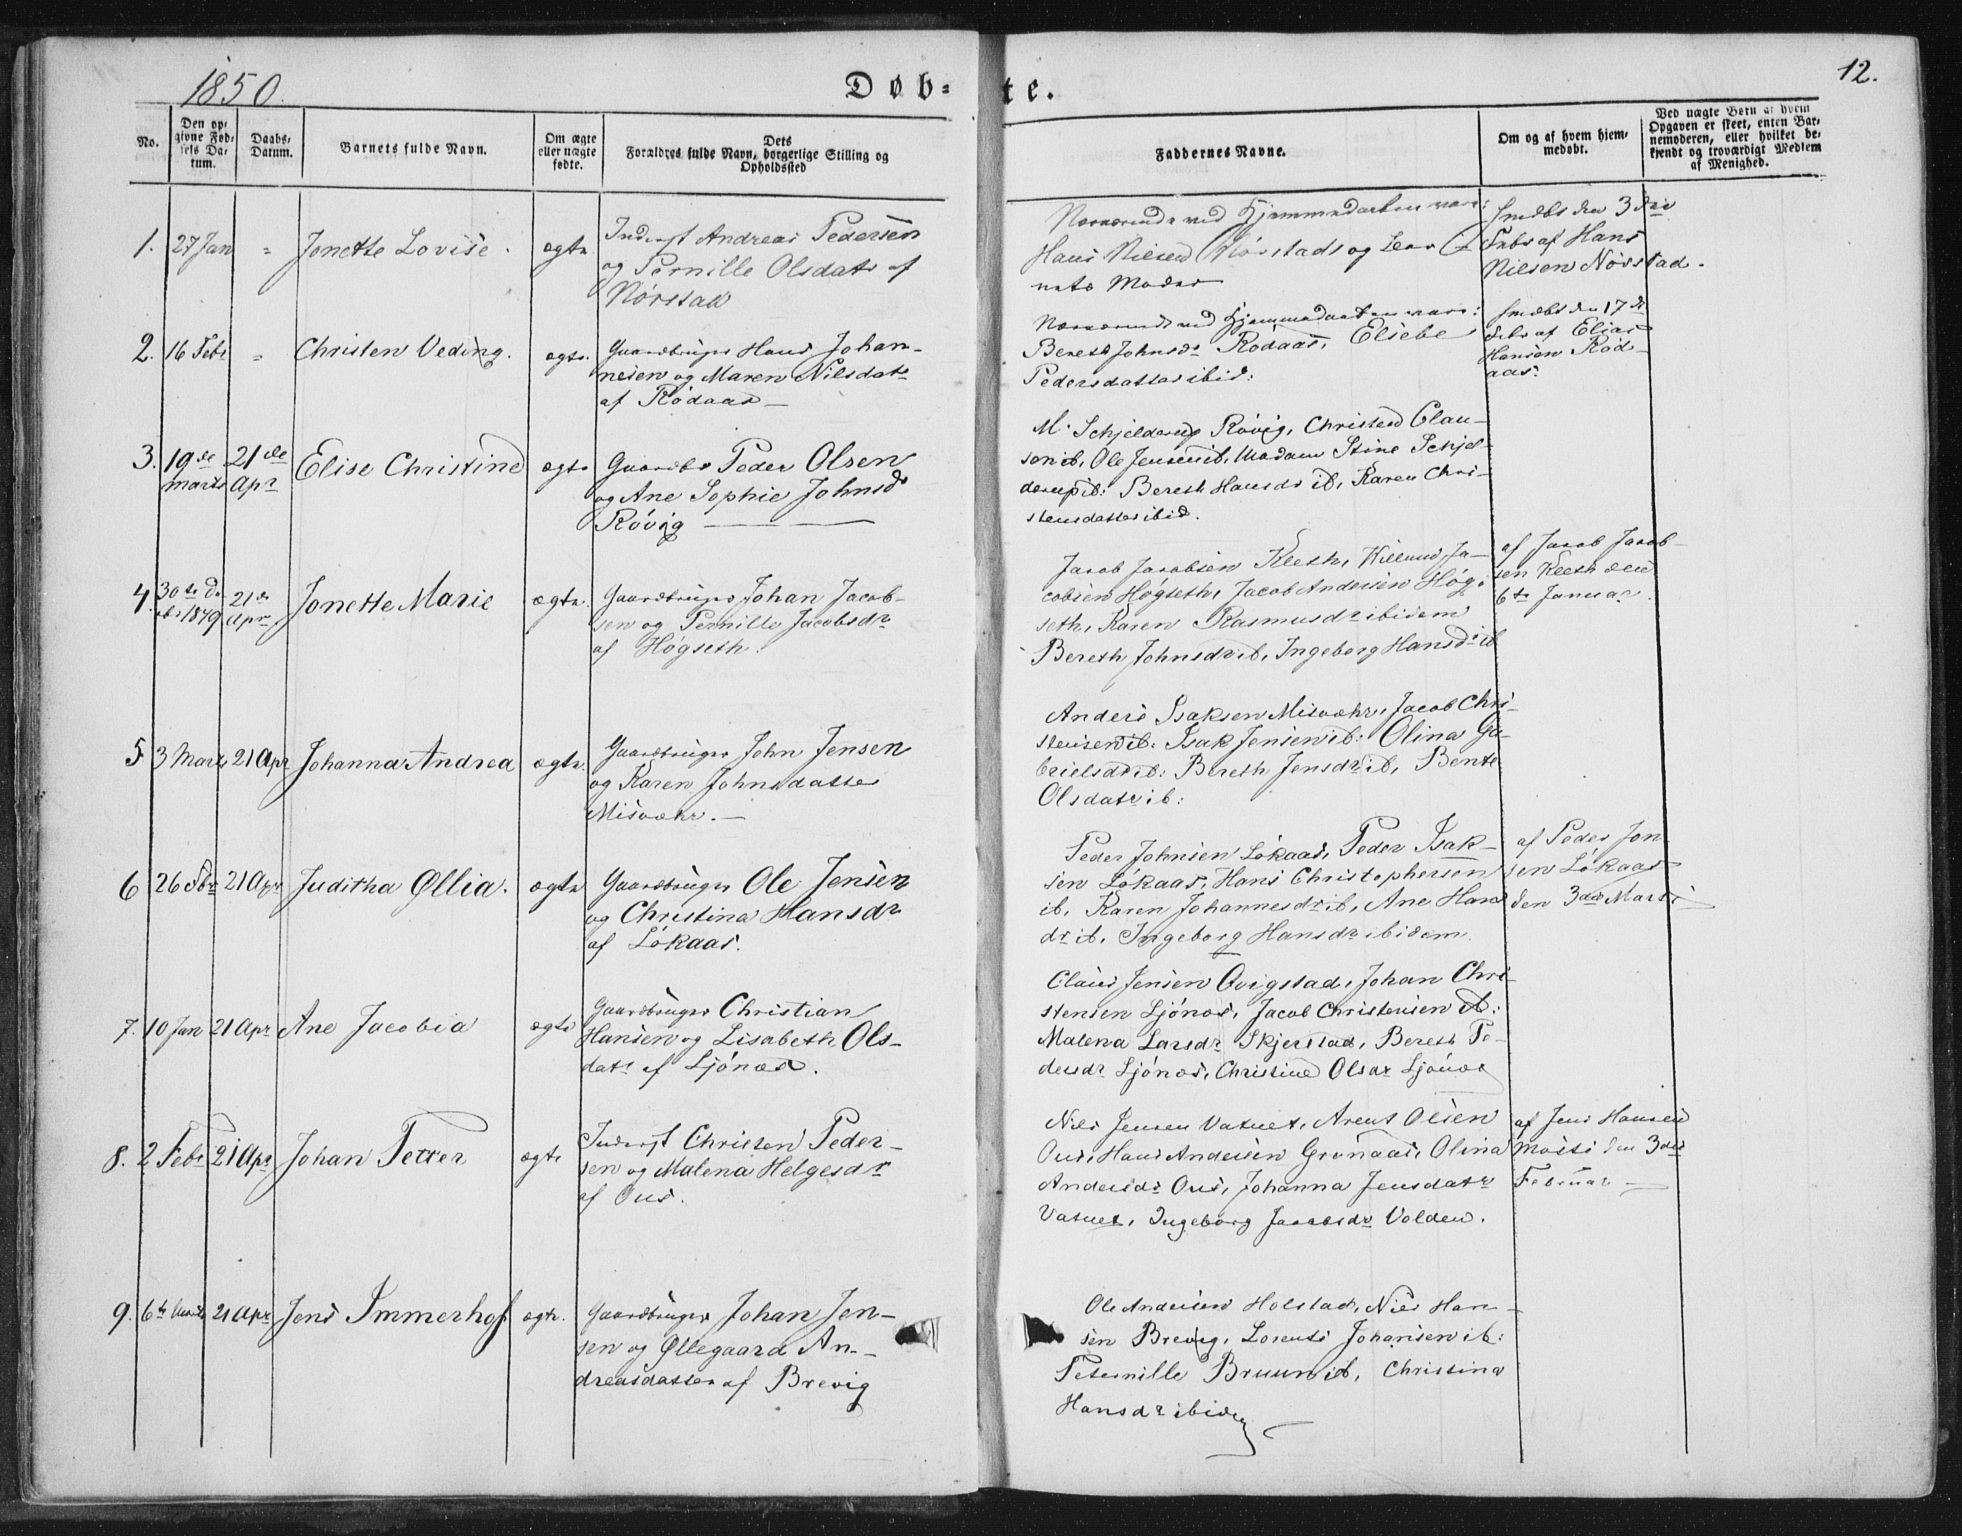 1850.
Døb-te.
12.
No.
Den opgivne Fødsels Datum.
Daabs-Datum.
Barnets fulde Navn.
Om ægte eller uægte fødte.
Dets Forældres fulde Navn, borgerlige Stilling og Opholdssted
Faddernes Navne.
Om og af hvem hjemmedøbt.
Ved uægte Børn at hvem Opgaven er skeet, enten Barnemoderen, eller hvilket bekjendt og troværdigt Medlem af Menighed.
1. 27 Jan " Jonette Lovise. ægte
Inderst Andreas Pedersen
og Pernille Olsdatr af
Nørstad
Nærværende ved Hjemmedaaben vare:
Hans Nilsen Nørstad og
Moder
hmdbt den 3die
Febr af Hans
Nilsen Nørstad.
2. 16 Febr " Christen Veding. ægte.
Gaardbruger Hans Johan-
nesen og Maren Nilsdatr
af Rødaas —
Nærværende ved Hjemmedaaben vare:
Bereth Johnsdr Rødaas, Elsebe
Pedersdatter ibid:
hmdbt den 17de
Febr af Elias
Hansen Rød-
aas.
3. 19de Marts 21de Apr Elise Christine ægte
Gaardbr Peder Olsen
og Ane Sophie Johnsdr
Røvig —
M. Schjelderup Røvig, Christen Clau-
sen ib, Ole Jensen ib, Madam Stine Schjel-
derup ib: Bereth Hansdr ib, Karen Chri-
stensdatter ibid.
4. 30te Debr 1849 21de Apr Jonette Marie ægte.
Gaardbruger Johan Jacob-
sen og Pernille Jacobsdr
af Høgseth.
Jacob Jacobsen Kleth, Ja-
cobsen Høgseth, Jacob Andersen Høg-
seth, Karen Rasmusdr ibidem
Bereth Johnsdr ib, Ingeborg Hansdr ib
af Jacob Jacob-
sen Kleth den
6te Januar.
5 3 Marts 21 Apr Johanna Andrea ægte.
Gaardbruger John Jensen
og Karen Johnsdatter
Misvær. —
Anders Isaksen Misvær, Jacob Chri-
stensen ib: Isak Jensen ib: Olina Ga-
brielsdr ib: Bereth Jensdr ib, Bente
Olsdatr ib:
6 26 Fbr 21 Apr Juditha Øllia. ægte
Gaardbruger Ole Jensen
og Christina Hansdr
af Løkaas.
Peder Johnsen Løkaas, Peder Isak-
sen Løkaas, Hans Christophersen
ib, Karen Johannesdr ib, Ane Hans
dr ib, Ingeborg Hansdr ibidem.
af Peder Jon
sen Løkaas
den 3die Marts
7. 10 Jan 21 Apr Ane Jacobia ægte
Gaardbruger Christian
Hansen og Lisabeth Ols-
datr af Ljønæs.
Claus Jensen Qvigstad, Johan Chri-
stensen Ljønæs, Jacob Christensen ib:
Malena Larsdr Skjerstad, Bereth Pe-
dersdr Ljønæs, Christine Olsdr Ljønæs
8. 2 Febr 21 Apr Johan Petter ægte
Inderst Christen Peder-
sen og Malena Helgesdr
af Ous.
Nils Jensen Vatnet, Arent Olsen
Ous, Hans Andersen Grønaas, Olina
Andersdr Ous, Johanna Jensdatr
Vatnet, Ingeborg Jacobsdr Volden.
af Jens Hansen
den 3die
Februar —
9. 6te Marts 21 Apr Jens Immerhof ægte.
Gaardbruger Johan Jen-
sen og Øllegaard An-
dreasdatter af Brevig
Ole Andersen Holstad, Niels Han-
sen Brevig, Lorents Johansen ib:
Peternille Bruun ib, Christina
Hansdr ibidem